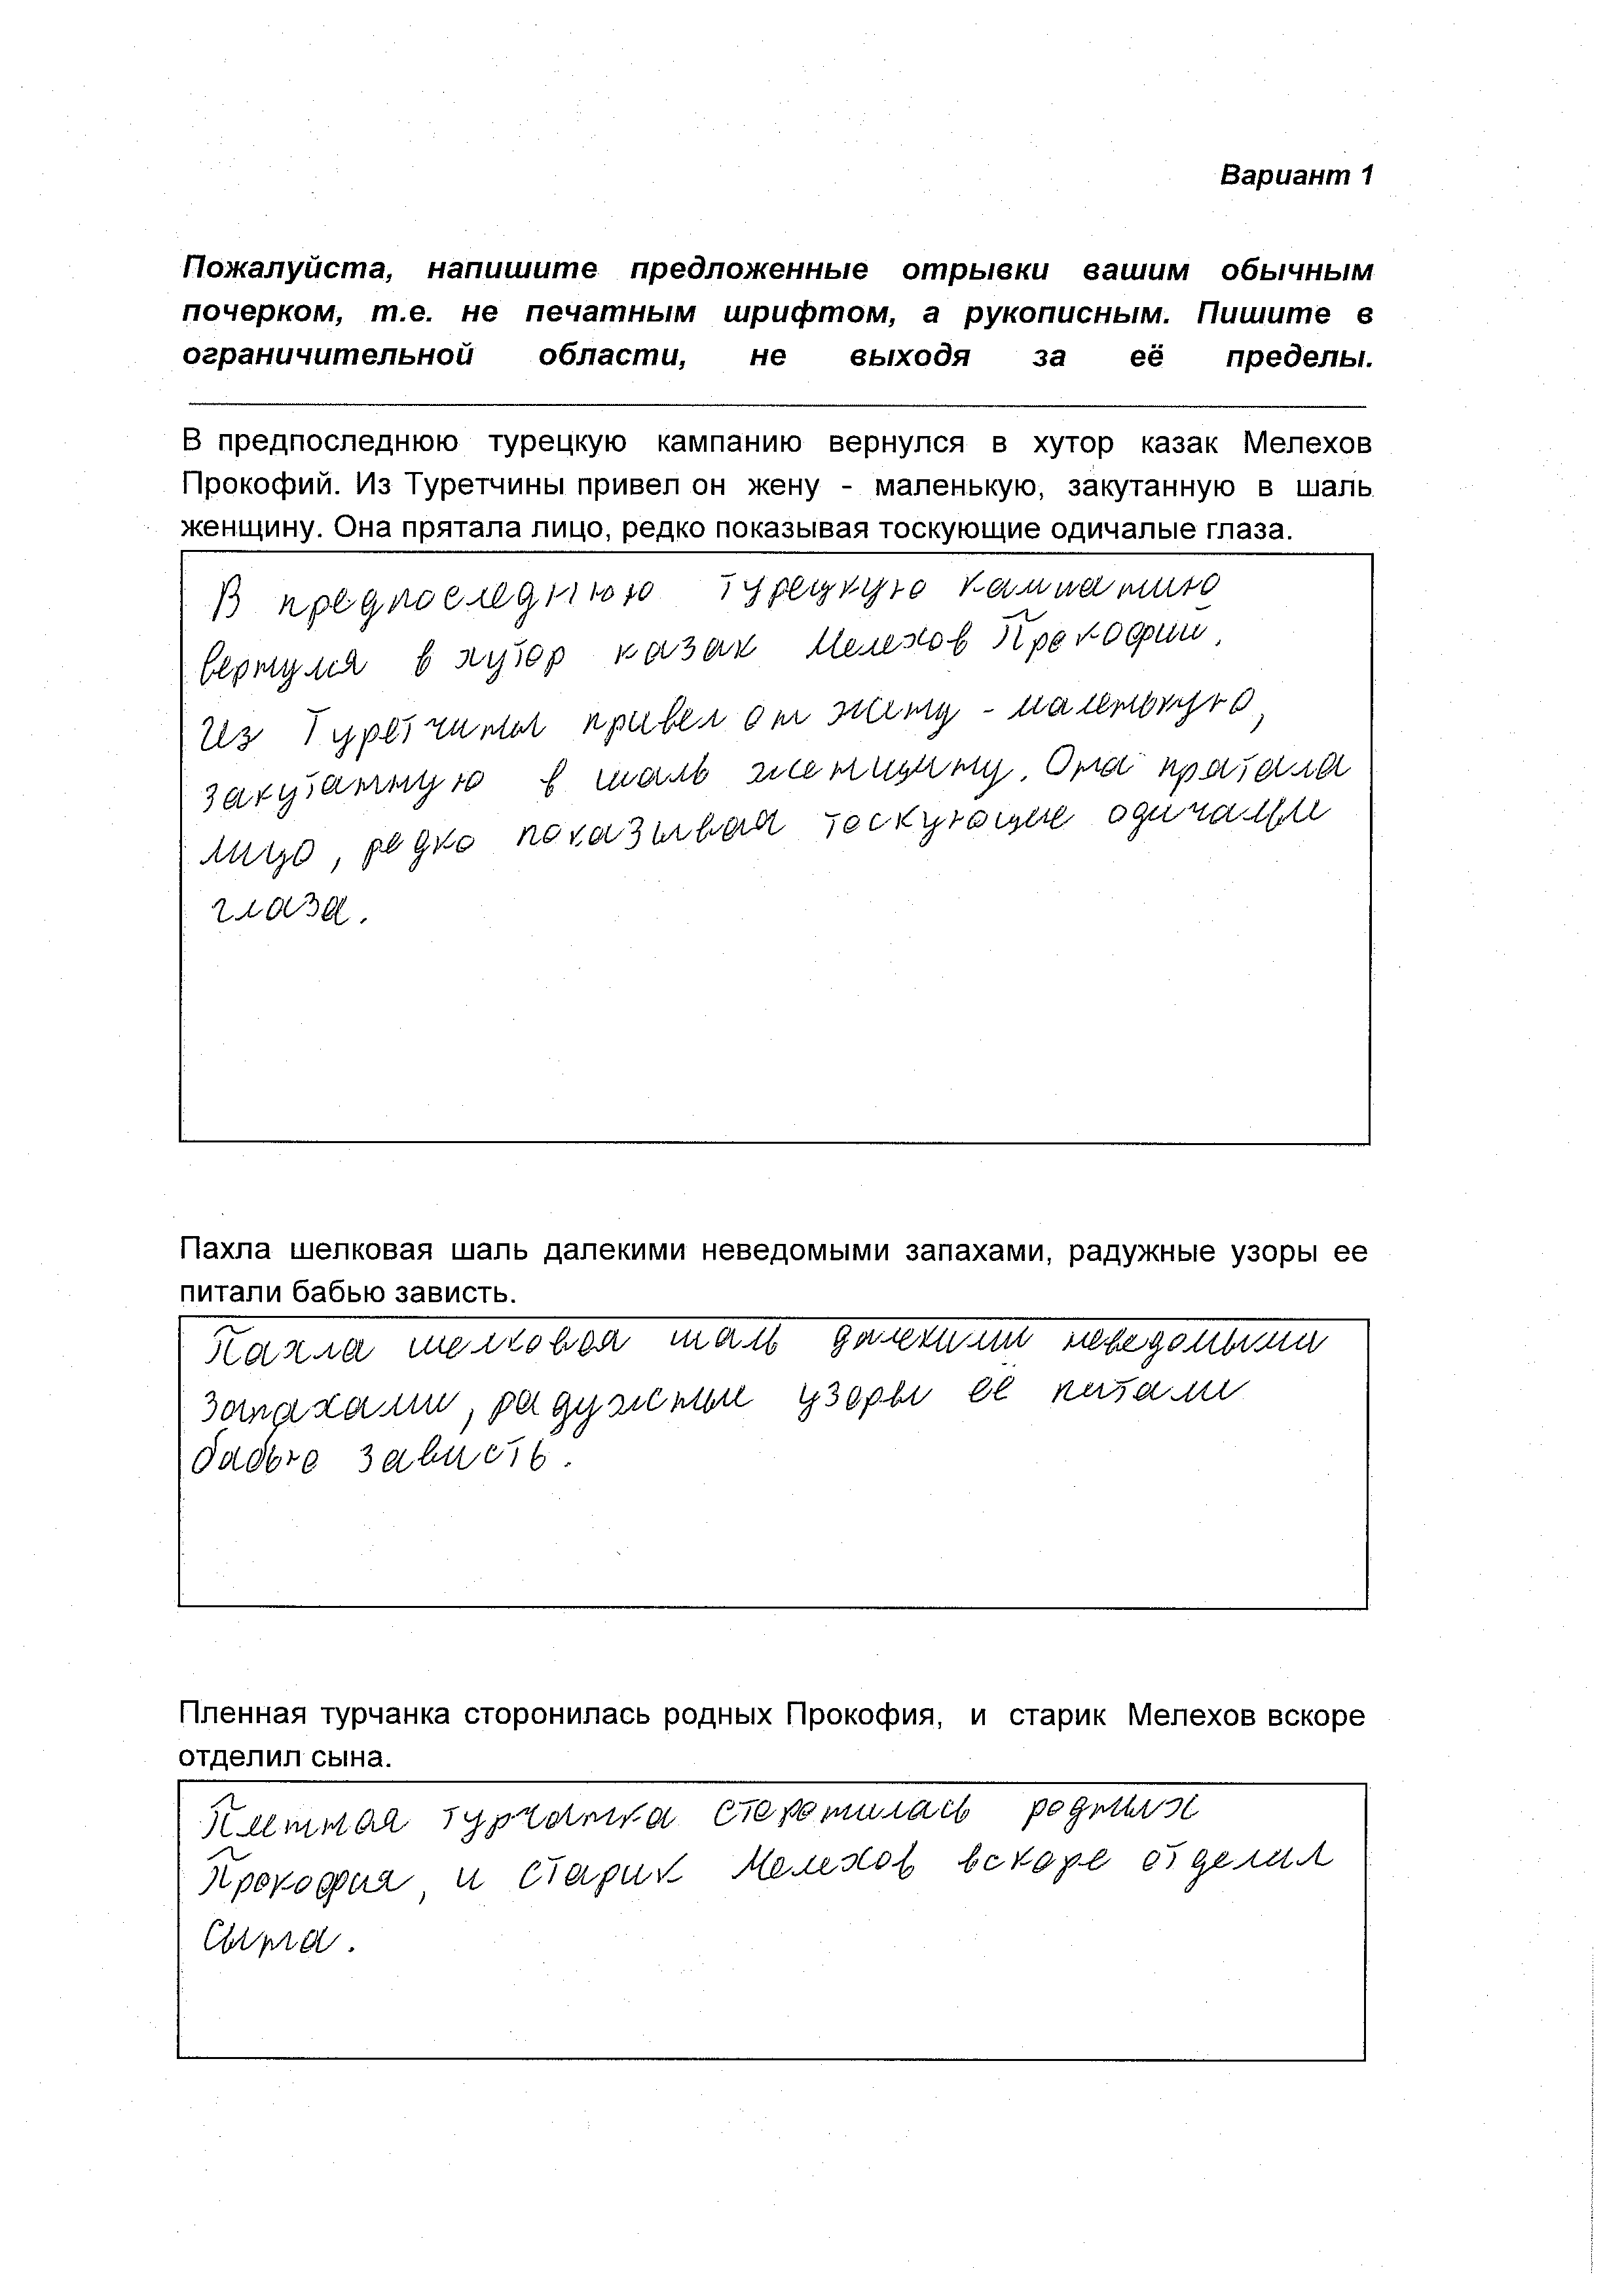 Вариант 1
Пожалуйста, напишите предложенные отрывки вашим обычным
почерком, т.е. не печатным шрифтом, а рукописным. Пишите в
ограничительной области, не выходя за её пределы.
В предпоследнюю турецкую кампанию вернулся в хутор казак Мелехов
Прокофий. Из Туретчины привел он жену - маленькую, закутанную в шаль
женщину. Она прятала лицо, редко показывая тоскующие одичалые глаза.
В предпоследнюю турецкую кампанию
вернулся в хутор казак Мелехов Прокофий.
Из Туретчины привел он жену - маленькую,
закутанную в шаль женщину. Она прятала
лицо, редко показывая тоскующие одичалые
глаза.
Пахла шелковая шаль далекими неведомыми запахами, радужные узоры ее
питали бабью зависть.
Пахла шелковая шаль далекими неведомыми
запахами, радужные узоры её питали
бабью зависть.
Пленная турчанка сторонилась родных Прокофия, и старик Мелехов вскоре
отделил сына.
Пленная турчанка сторонилась родных
Прокофия, и старик Мелехов вскоре отделил
сына.